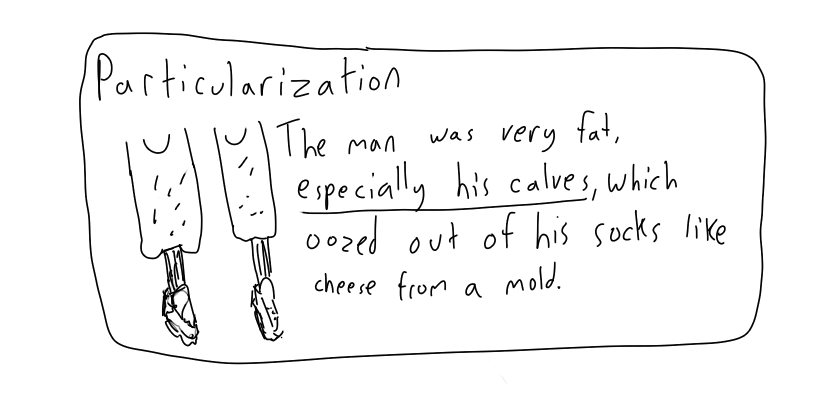 Particularization
The man was very fat,
especially his calves, which
oozed out of his socks like
cheese from a mold.